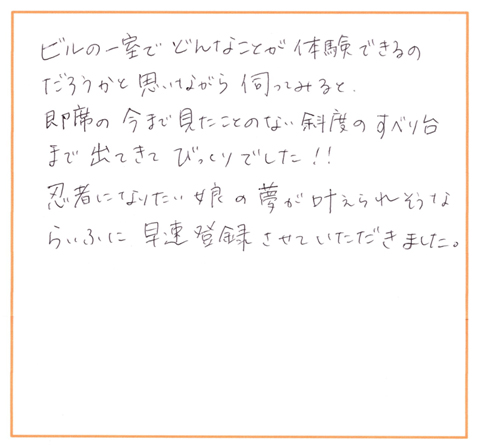 ビルの一室で どんなことが 体験できるの
だろうかと 思いながら 伺ってみると、
即席の 今まで 見たことのない 斜度の すべり台
まで 出てきて びっくりでした!!
忍者になりたい 娘の 夢が 叶えられそうな
らいふに 早速 登録 させていただきました。